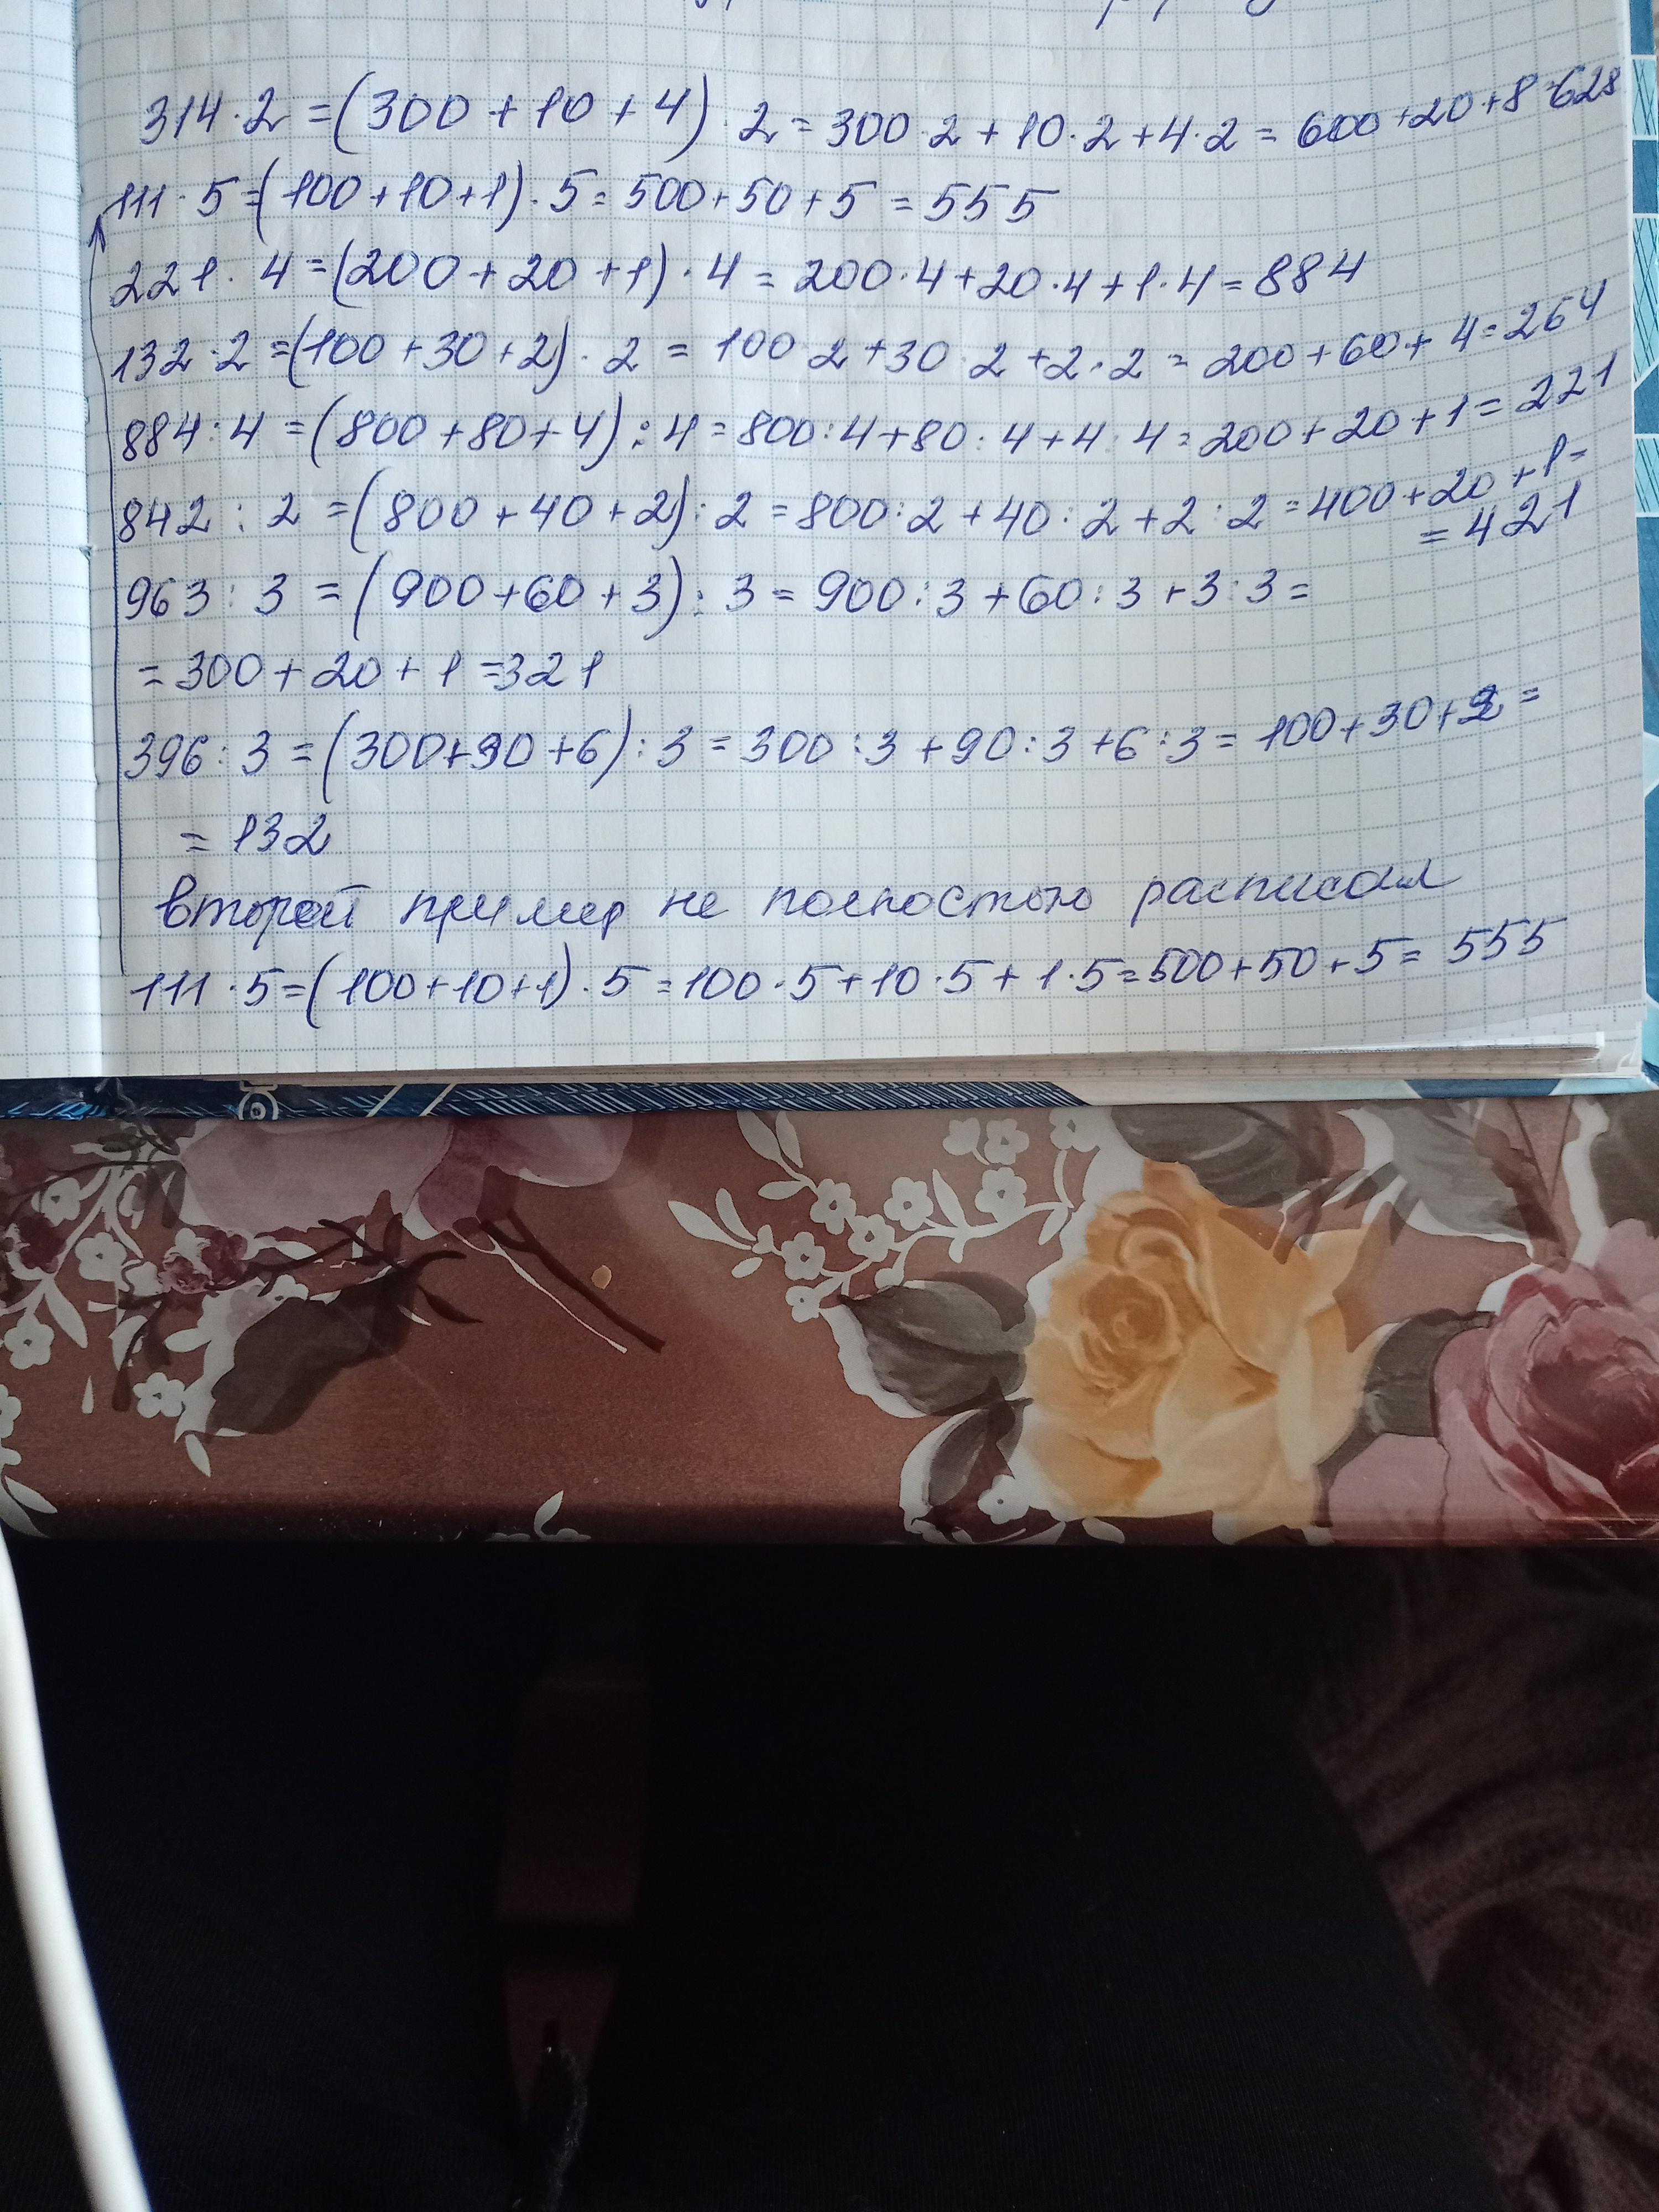 314·2=(300+10+4)·2=300·2+10·2+4·2=600+20+8=628
111·5=(100+10+1)·5=500+50+5=555
221·4=(200+20+1)·4=200·4+20·4+1·4=884
132·2=(100+30+2)·2=100·2+30·2+2·2=200+60+4=264
884:4=(800+80+4):4=800:4+80:4+4:4=200+20+1=221
842:2=(800+40+2):2=800:2+40:2+2:2=400+20+1=
=421
963:3=(900+60+3):3=900:3+60:3+3:3=
=300+20+1=321
396:3=(300+90+6):3=300:3+90:3+6:3=100+30+2=
=132
второй пример не полностью расписал
111·5=(100+10+1)·5=100·5+10·5+1·5=500+50+5=555